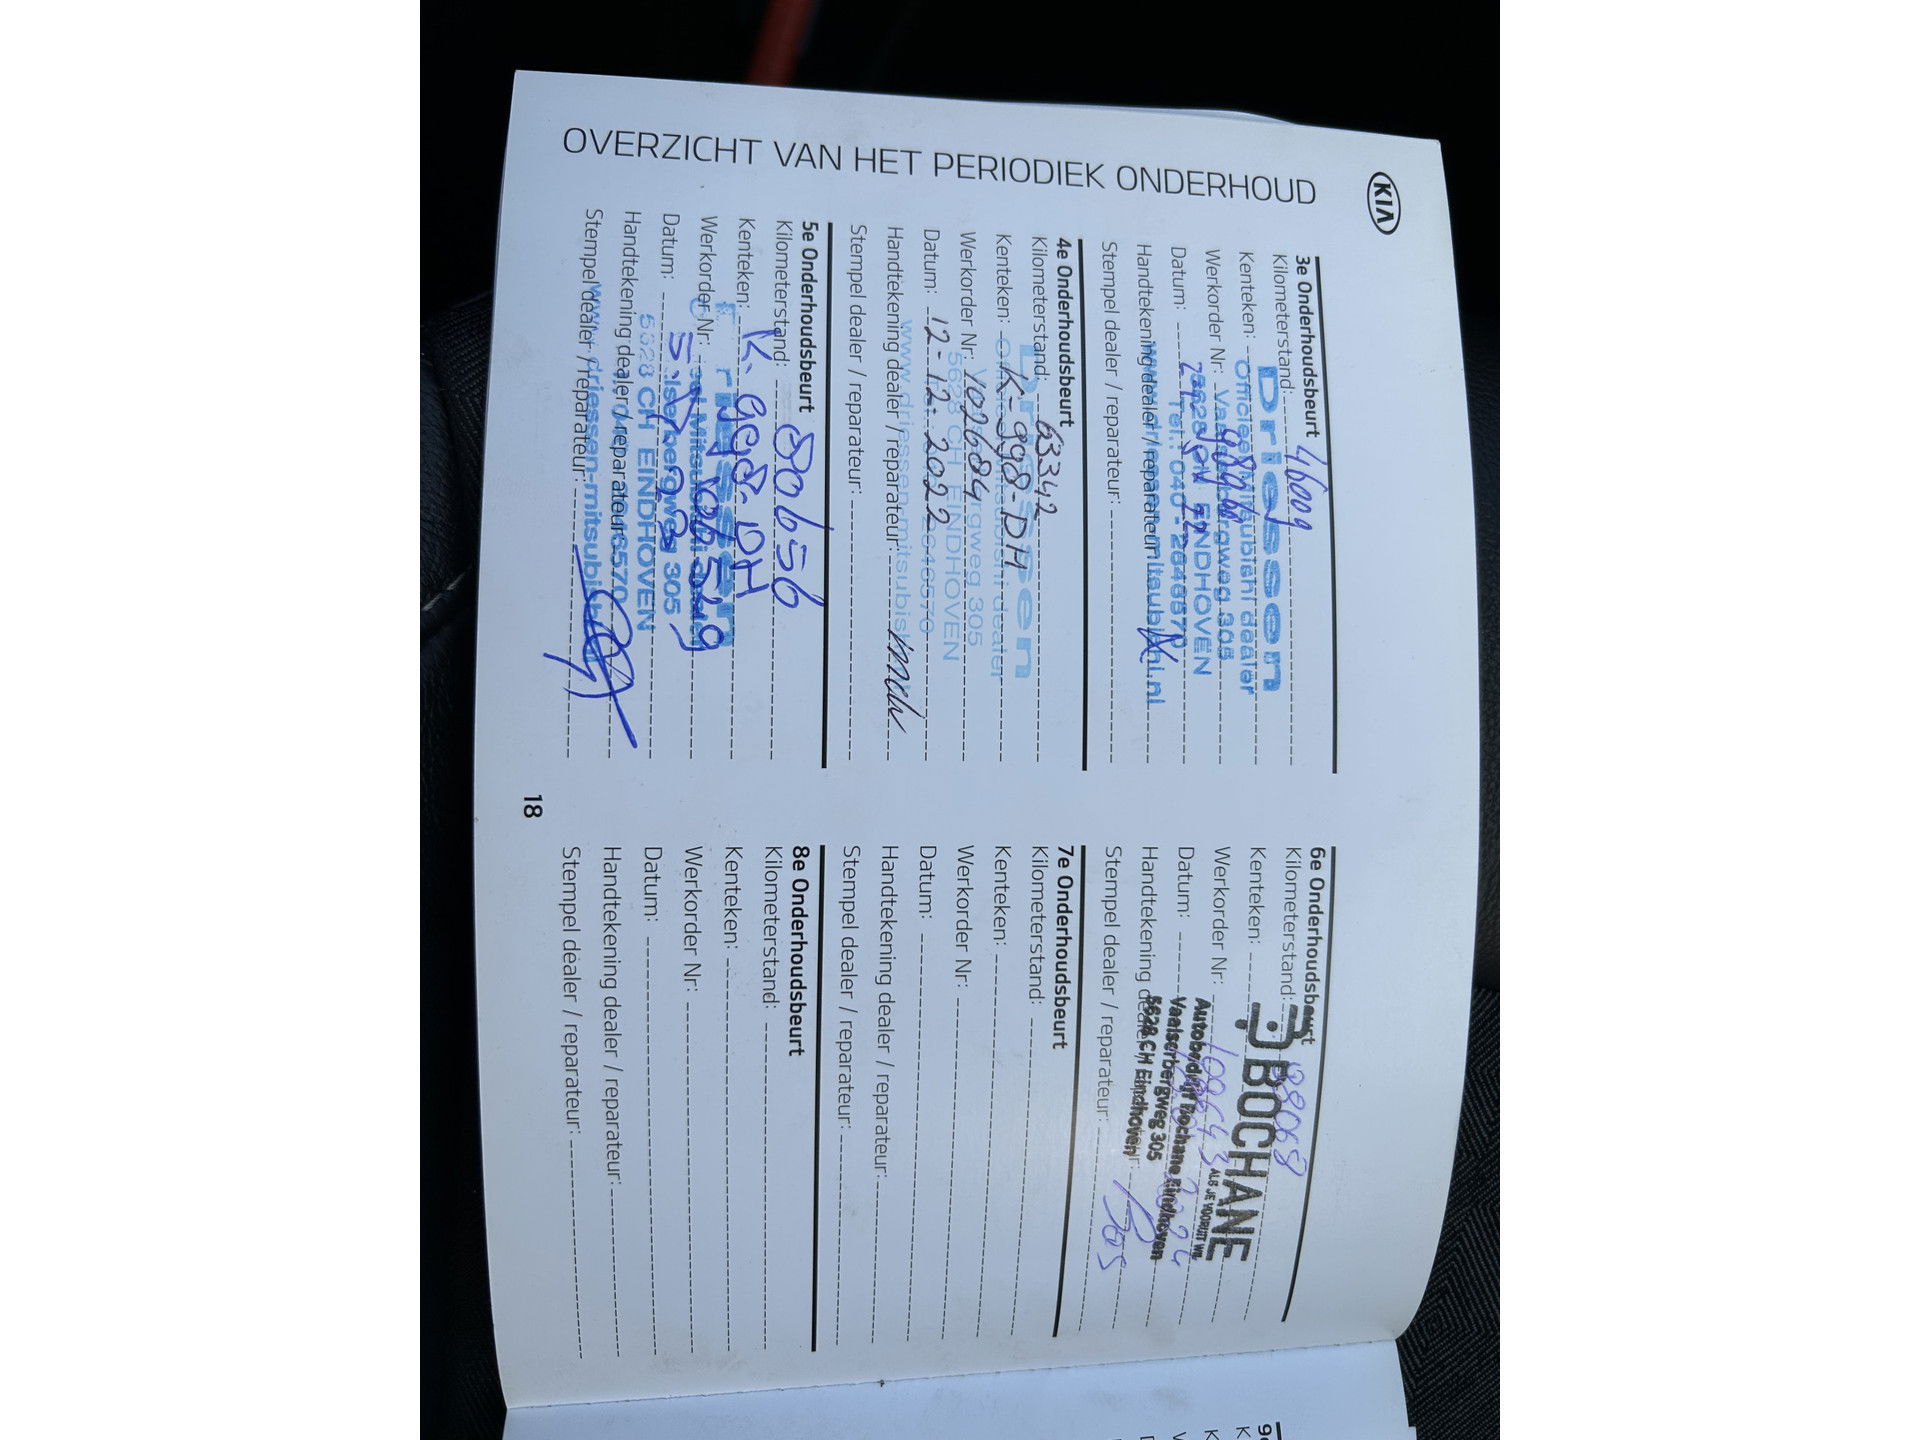 KIA
OVERZICHT VAN HET PERIODIEK ONDERHOUD
3e Onderhoudsbeurt
Kilometerstand: 46009
Kenteken:
Werkorder Nr:
Datum:
Handtekening dealer / reparateur:
Stempel dealer / reparateur:
Driessen
Officieel Mitsubishi dealer
Vaalserbergweg 305
5628 CH EINDHOVEN
Tel.: 040-2646570
www.driessen-mitsubishi.nl
4e Onderhoudsbeurt
Kilometerstand: 63342
Kenteken: K-998-DH
Werkorder Nr: 102684
Datum: 12-12-2022
Handtekening dealer / reparateur:
Stempel dealer / reparateur:
Driessen
Officieel Mitsubishi dealer
Vaalserbergweg 305
5628 CH EINDHOVEN
2646570
www.driessen-mitsubishi.nl
5e Onderhoudsbeurt
Kilometerstand: 80656
Kenteken: K-998-DH
Werkorder Nr:
Datum:
Handtekening dealer / reparateur:
Stempel dealer / reparateur:
Driessen
Mitsubishi dealer
Vaalserbergweg 305
5628 CH EINDHOVEN
www.driessen-mitsubishi
18
6e Onderhoudsbeurt
Kilometerstand: 98068
Kenteken:
Werkorder Nr: 109643
Datum:
Handtekening dealer / reparateur:
Stempel dealer / reparateur:
BOCHANE
ALS JE VOORUIT WIL
Autobedrijf Bochane Eindhoven
Vaalserbergweg 305
5628 CH Eindhoven
7e Onderhoudsbeurt
Kilometerstand:
Kenteken:
Werkorder Nr:
Datum:
Handtekening dealer / reparateur:
Stempel dealer / reparateur:
8e Onderhoudsbeurt
Kilometerstand:
Kenteken:
Werkorder Nr:
Datum:
Handtekening dealer / reparateur:
Stempel dealer / reparateur: